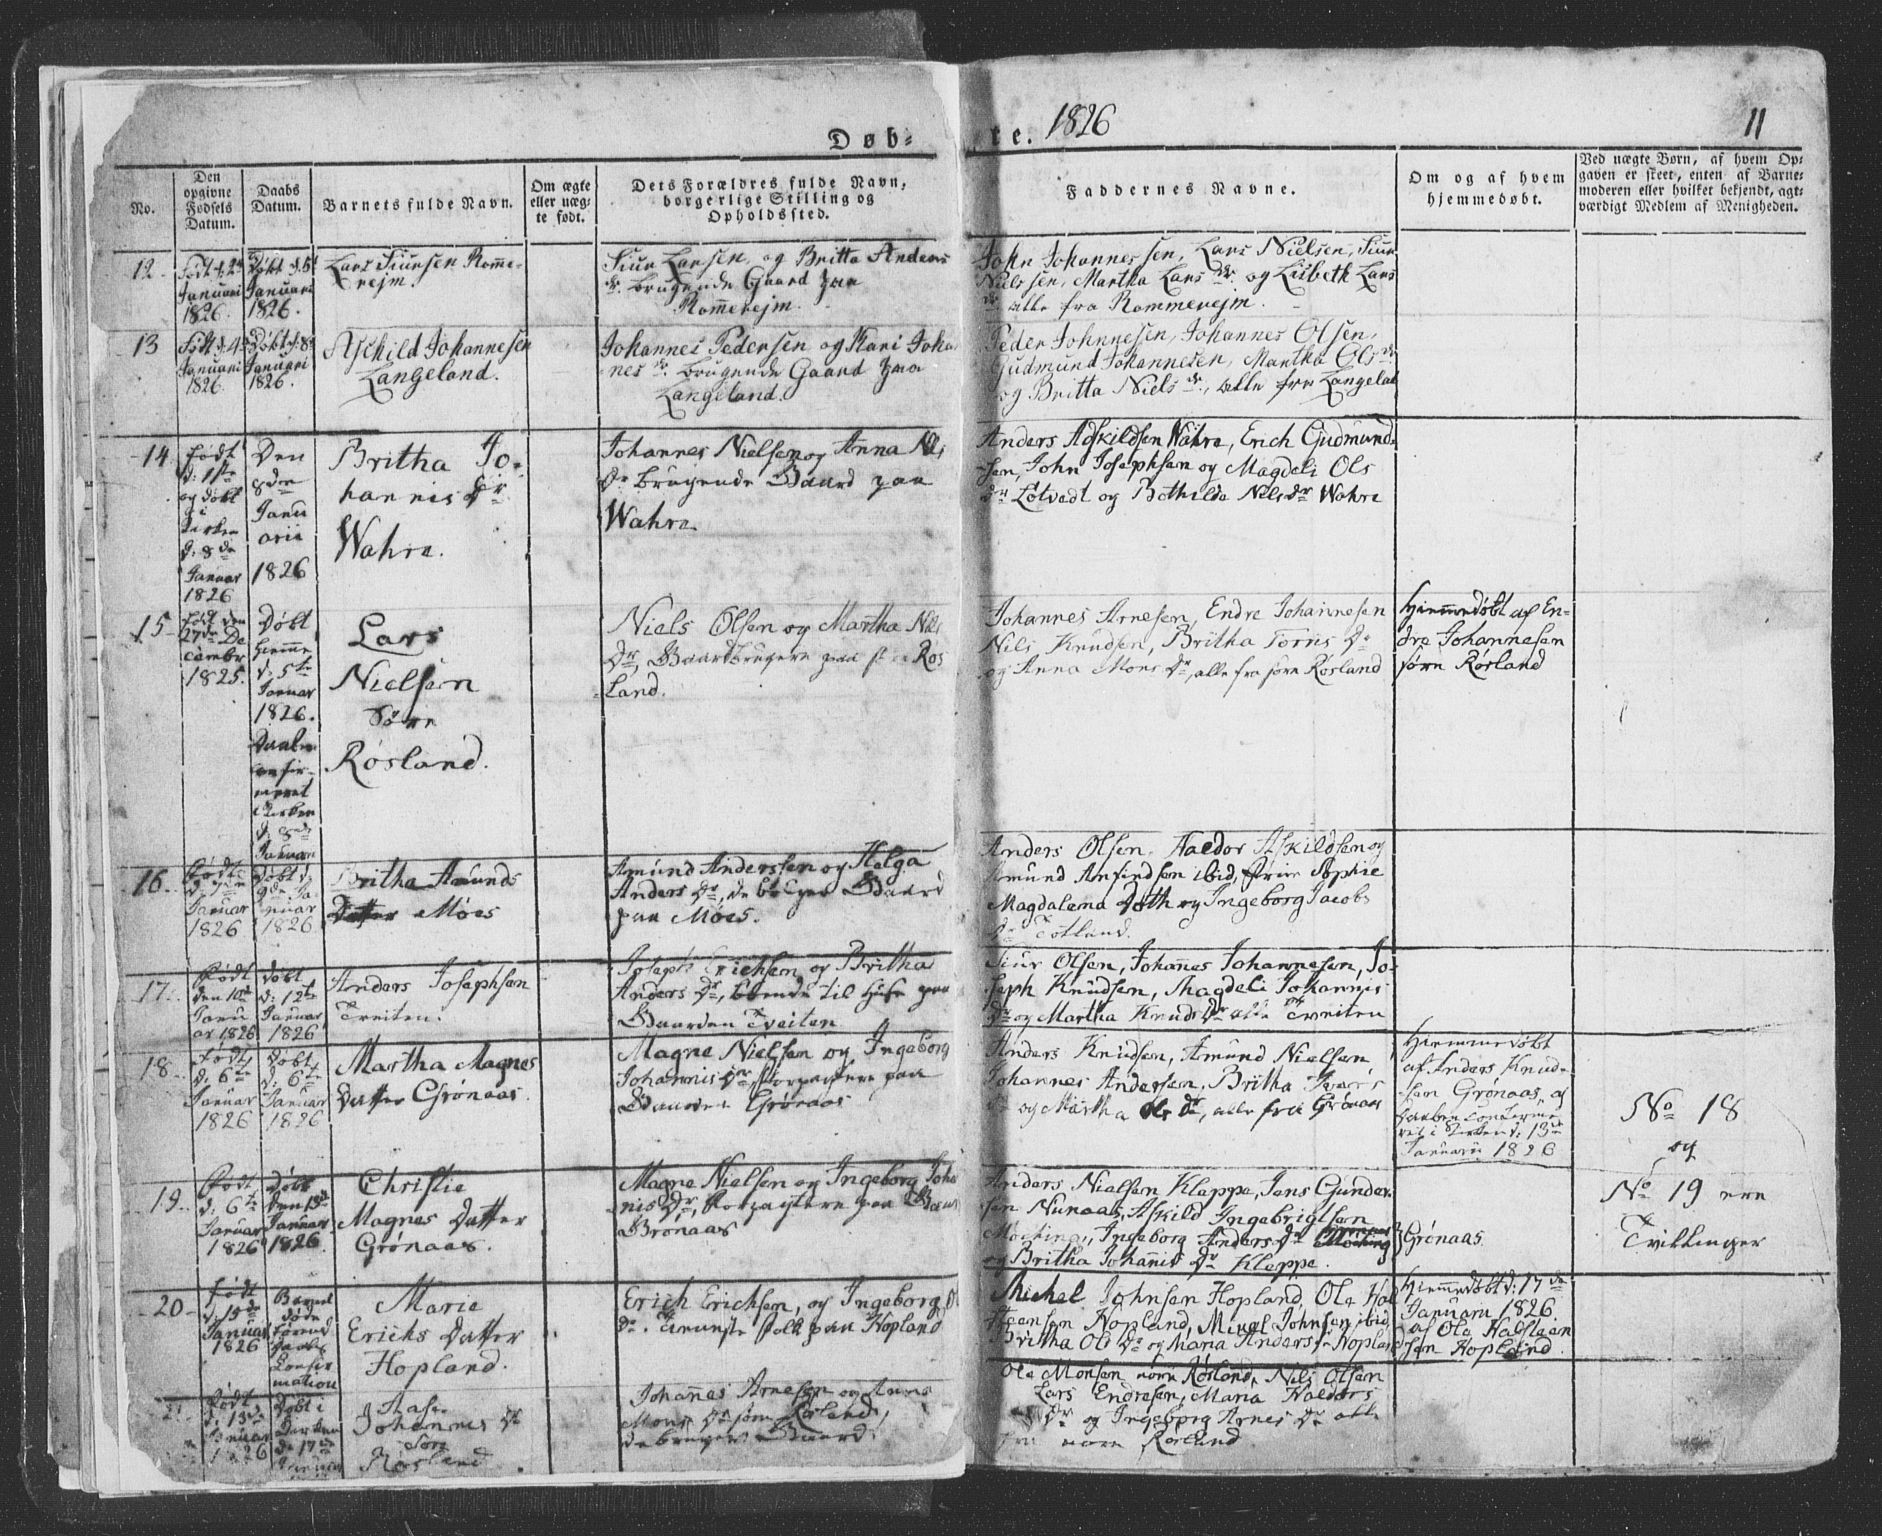 Døb-
te. 1826
11
No.
Den opgivne Fødsels Datum.
Daabs Datum.
Barnets fulde Navn.
Om ægte eller uægte født.
Dets Forældres fulde Navn, borgerlige Stilling og Opholdssted.
Faddernes Navne.
Om og af hvem hjemmedøbt.
Ved uægte Børn, af hvem Opgaven er skeet, enten af Barnemoderen eller hvilket bekjendt, agtværdigt Medlem af Menigheden.
12
Januari
1826.
Januari
1826.
Lars Siursen Romme-
rejm
Siur Larsen, og Britta Anders
dr. brugende Gaard paa
Rommerejm.
John Johannessen, Lars Nielsen, Siur
Nielssen, Martha Lars dr. og Lisbeth Lars
dr. alle fra Rommerejm.
13
Januari
1826.
Januari
1826.
Aschild Johannesen
Langeland.
Johannes Pedersen og Kari Joha
nes dr. brugende Gaard paa
Langeland.
Peder Johnnesen, Johannes Olsen,
Gudmund Johannesen, Martha Ols dr
og Britta Niels dr., alle fra Langeland
14
Født
d: 1ste
og døbt
i
Kirken
d: 8de
Januar
1826
Den
8de
Janu
arii
1826
Britha Jo-
hannis Dr
Wahre.
Johannes Nielsen og Anna Nils
Dr brugende Gaard paa
Wahre.
Anders Askildsen Wahre, Erich Gudmund-
sen, John Josephsen og Magdeli Ols
dr Lotvedt og Bothilda Nils dr Wahre
15
Født den
27de De
cembr
1825.
Døbt
hiemme
d: 5te
Januar
1826.
Daaben
confir-
meret
i Kirken
d: 8de
Januar
Lars
Nielsen
Søre
Røsland.
Niels Olsen og Martha Nils
Dr, Gaardbrugere paa Ros
land.
Johannes Arnesen, Endre Johannesen
Nils Knudsen, Britha Torris Dr
og Anna Mons Dr, alle fra søre Røsland
Hiemmedøbt af En-
dre Johannesen
søre Røsland
16.
Født
Januar
1826
Døbt d:
9de Ja
nuar
1826
Britha Amunds
Datter Møes
Amund Anderssen og Helga
Anders Dr, de bruger Gaard
paa Møes.
Anders Olsen, Haldor Askildsen og
Amund Anfindsen ibid, Sophie
Magdalena Doth og Ingeborg Jacobs
Dr Totland.
17.
Født
den 10de
Janu
ar 1826
Døbt
d: 12te
Januar
1826
Anders Josephsen
Tveiten.
Joseph Erichsen og Britha
Anders Dr, boende til Huse paa
Gaarden Tveiten
Siur Olsen, Johannes Johannesen, Jo-
seph Knudsen, Magdeli Johannis
Dr og Martha Knuds Dr alle Tveiten
18.
Født
d: 6te
Januar
1826
Døbt
d: 6te
Januar
1826
Martha Magnes
Datter Grønaas.
Magne Nielsen og Ingeborg
Johannis Dr, Forpagtere paa
Gaarden Grønaas
Anders Knudsen, Amund Nielsen
Johannes Andersen, Britha Ivars
Dr og Martha Ols Dr, alle fra Grønaas
Hiemmedøbt
af Anders Knud-
sen Grønaas, og
Daaben Confirme
ret i Kirken d: 13de
Januarii 1826
No 18
og
No 19 ere
Tvillinger
19.
Født
d: 6te
Januar
1826
Døbt
den 13de
Januar
1826.
Christie
Magnes Datter
Grønaas.
Magne Nielsen og Ingeborg Joha
nis Dr, Forpagtere paa Gaard
Grønaas
Anders Nielsen Kleppe, Jens Gunder-
sen Nunaas, Askild Ingebrigtsen
Møcking, Ingeborg Anders Dr
og Britha Johannis Dr Kleppe.
Grønaas
20
Født
d: 15de
Januar
1826
Barnet
døde
førend
Daabs
Confir
mation
Marie
Erichs Datter
Hopland.
Erich Erichsen, og Ingeborg Ol
Dr. Tieneste folk paa Hopland
Michel Johnsen Hopland, Ole Hal
steensen Hopland, Johnsen ibid,
Britha Ols Dr og Maria Anders Dr Hopland
Hiemmedøbt d: 17de
Januarii 1826
af Ole Hadsteen
sen Hopland.
21
Født
d: 13de
Januar
1826
Døbt i
Kirken
de 17de
Januar
Johannes Dr
Søre
Røsland
Johannes Arnesen og Anna
Mons Dr søre Røsland,
de bruger Gaard.
Ole Monsen nore Røsland, Nils Olsen
Lars Endresen, Maria Haldors
Dr og Ingeborg Arnes Dr alle
fra nore Røsland.